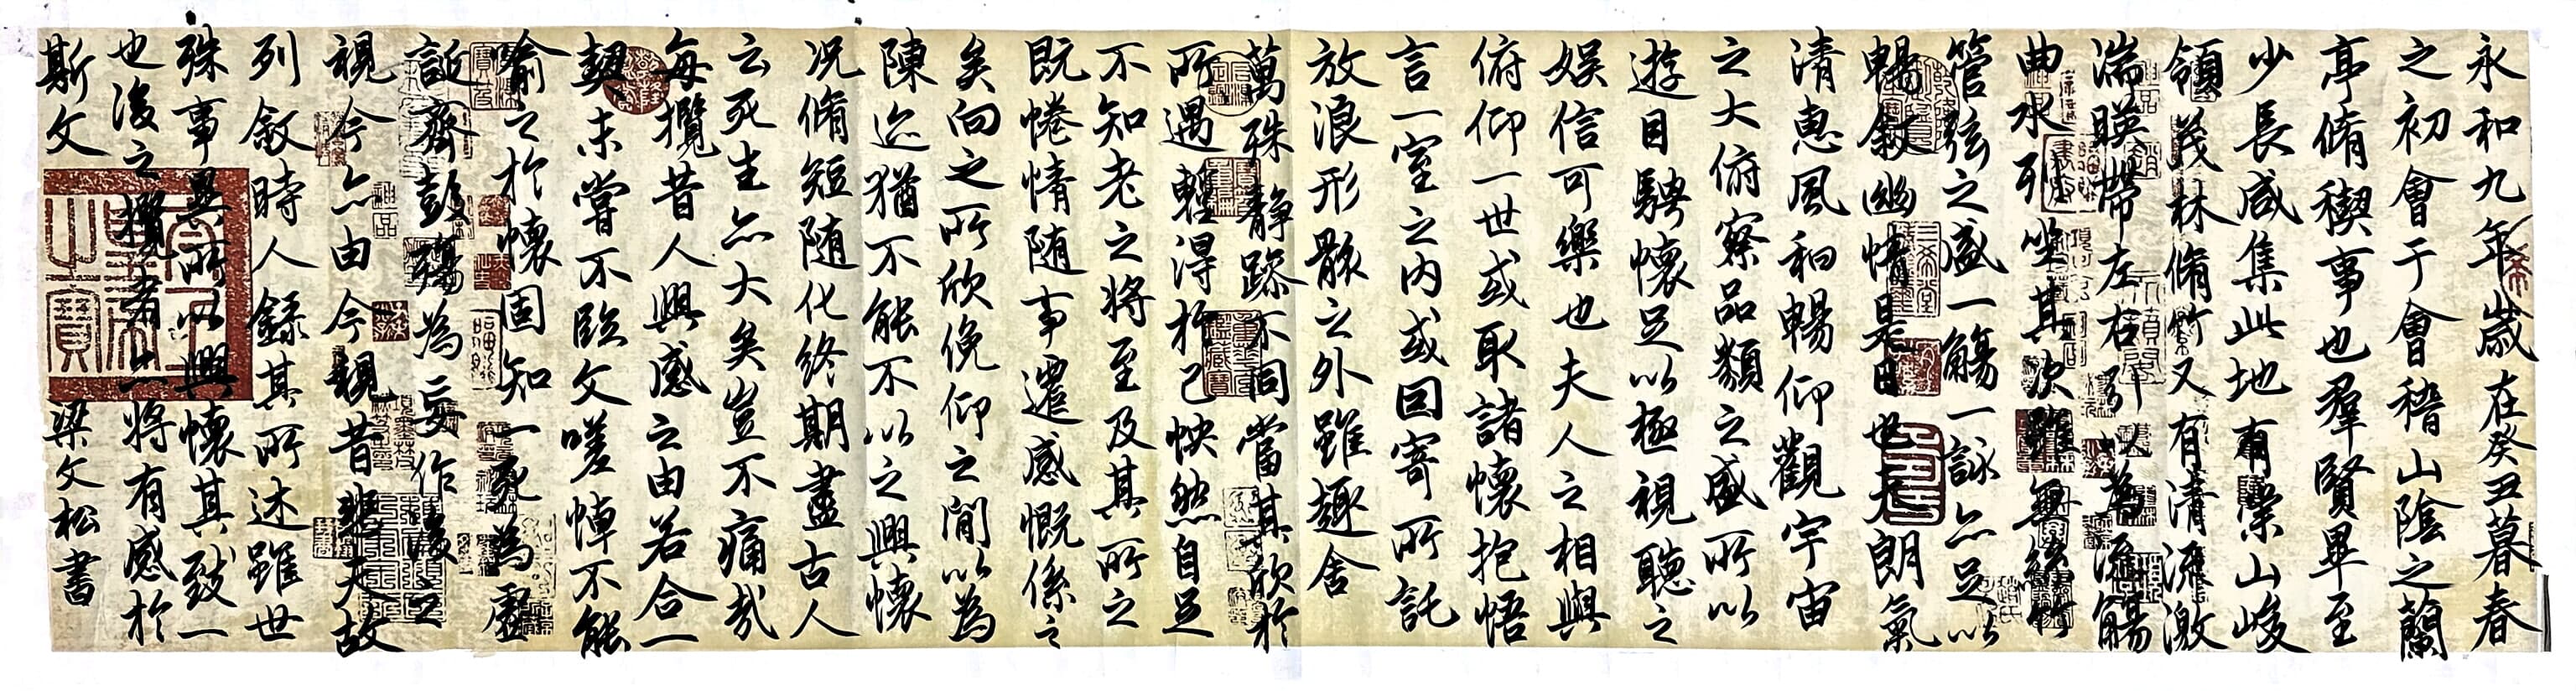 永和九年歲在癸丑暮春
之初會于會稽山陰之蘭
亭脩稧事也羣賢畢至
少長咸集此地有崇山峻
領茂林脩竹又有清流激
湍暎帶左右引以為流觴
曲水列坐其次雖無絲竹
管弦之盛一觴一詠亦足以
暢敘幽情是日也天朗氣
清惠風和暢仰觀宇宙
之大俯察品類之盛所以
遊目騁懷足以極視聽之
娛信可樂也夫人之相與
俯仰一世或取諸懷抱悟
言一室之內或因寄所託
放浪形骸之外雖趣舍
萬殊靜躁不同當其欣於
所遇蹔得於己怏然自足
不知老之將至及其所之
既惓情随事遷感慨係之
矣向之所欣俛仰之閒以為
陳迹猶不能不以之興懷
况脩短随化終期盡古人
云死生亦大矣豈不痛哉
每攬昔人興感之由若合一
契未嘗不臨文嗟悼不能
喻之於懷固知一死為虛
誕齊彭殤為妄作後之
視今亦由今視昔悲夫故
列敘時人錄其所述雖世
殊事異所以興懷其致一
也後之攬者亦將有感於
斯文 梁文松書